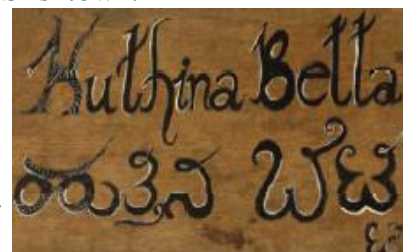 Huthina Betta
ಹುತ್ತಿನ ಬೆಟ್ಟ